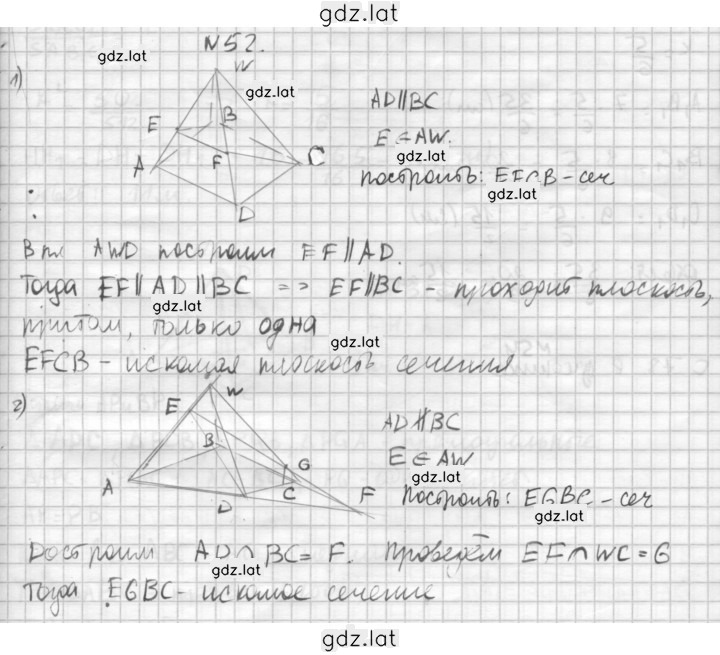 gdz.lat
N52.
gdz.lat
1)
W
gdz.lat
B
E
F
A
C
D
AD∥BC
E∈AW.
gdz.lat
построить: EF∩B – сеч
gdz.lat
В пл AWD построим EF∥AD.
Тогда EF∥AD∥BC => EF∥BC – проходит плоскость,
gdz.lat
притом, только одна
gdz.lat
EFCB – искомая плоскость сечения
2)
W
E
B
G
A
C
D
F
AD∦BC
E∈AW
gdz.lat
Построить: EGBC – сеч
gdz.lat
Достроим AD∩BC=F. Проведём EF∩WC=G
gdz.lat
Тогда EGBC – искомое сечение
gdz.lat